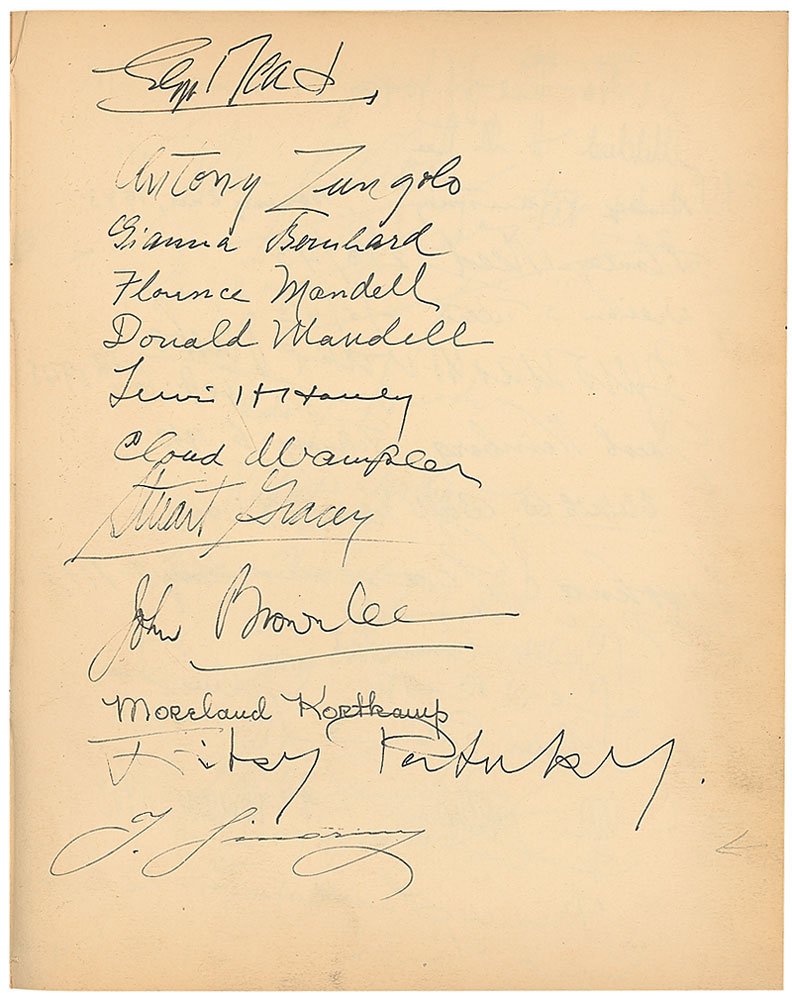 Antony Zungolo
Gianna Bernhard
Florence Mandell
Donald Mandell
Lewis H Haney
Cloud Wampler
Stuart Gracey
John Brownlee
Moreland Kortkamp
Fitzy
T.